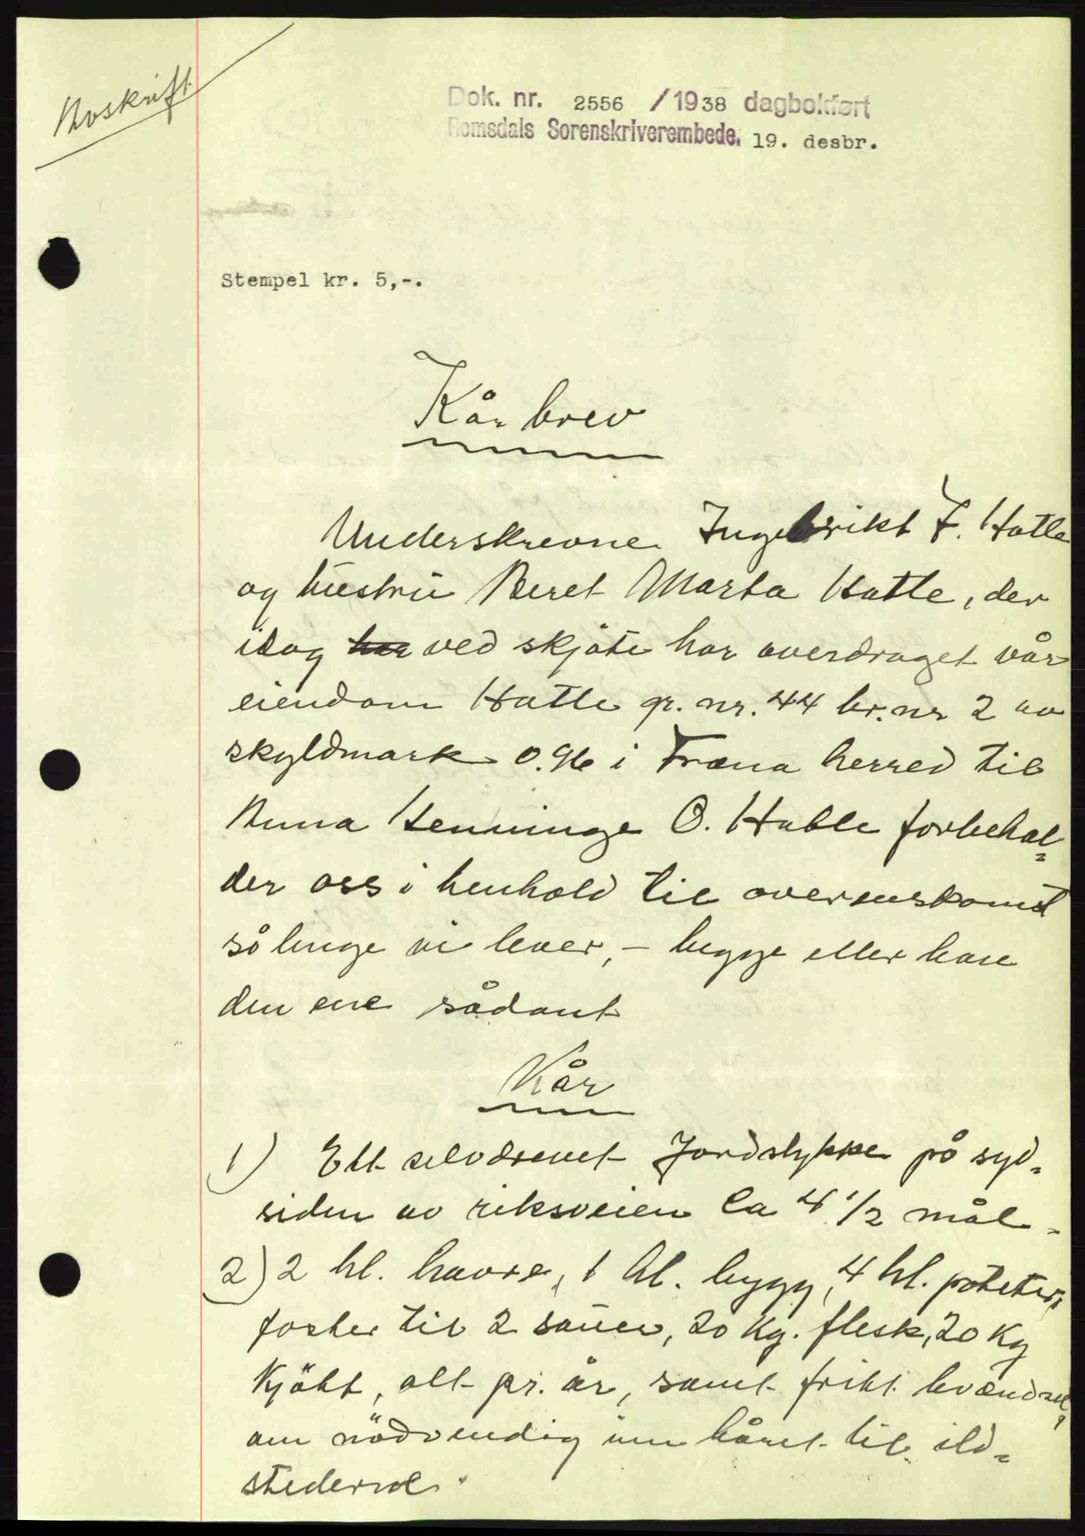 Avskrift
Dok. nr. 2556 /1938 dagbokført
Romsdals Sorenskriverembede, 19. desbr.
Stempel kr. 5,-.
Kårbrev
Underskrevne Ingebrikt F. Hatle
og hustru Beret Marta Hatle, der
idag har ved skjøte har overdraget vår
eiendom Hatle gr. nr. 44 br. nr 2 av
skyldmark 0.96 i Fræna herred til
Anna Henninge O. Hatle forbehol=
der oss i henhold til overenskomst
så lenge vi lever, - begge eller bare
den ene sådant
Kår
1) Ett selvdrevet Jordstykke på syd=
siden av riksveien Ca 4 1/2 mål.
2) 2 hl. havre, 1 hl. bygg, 4 hl. poteter,
forher til 2 sauer, 20 kg. flesk, 20 kg
Kjøtt, alt pr. år, samt fritt brændsel,
om nødvendig inn båret til ild=
stederne.